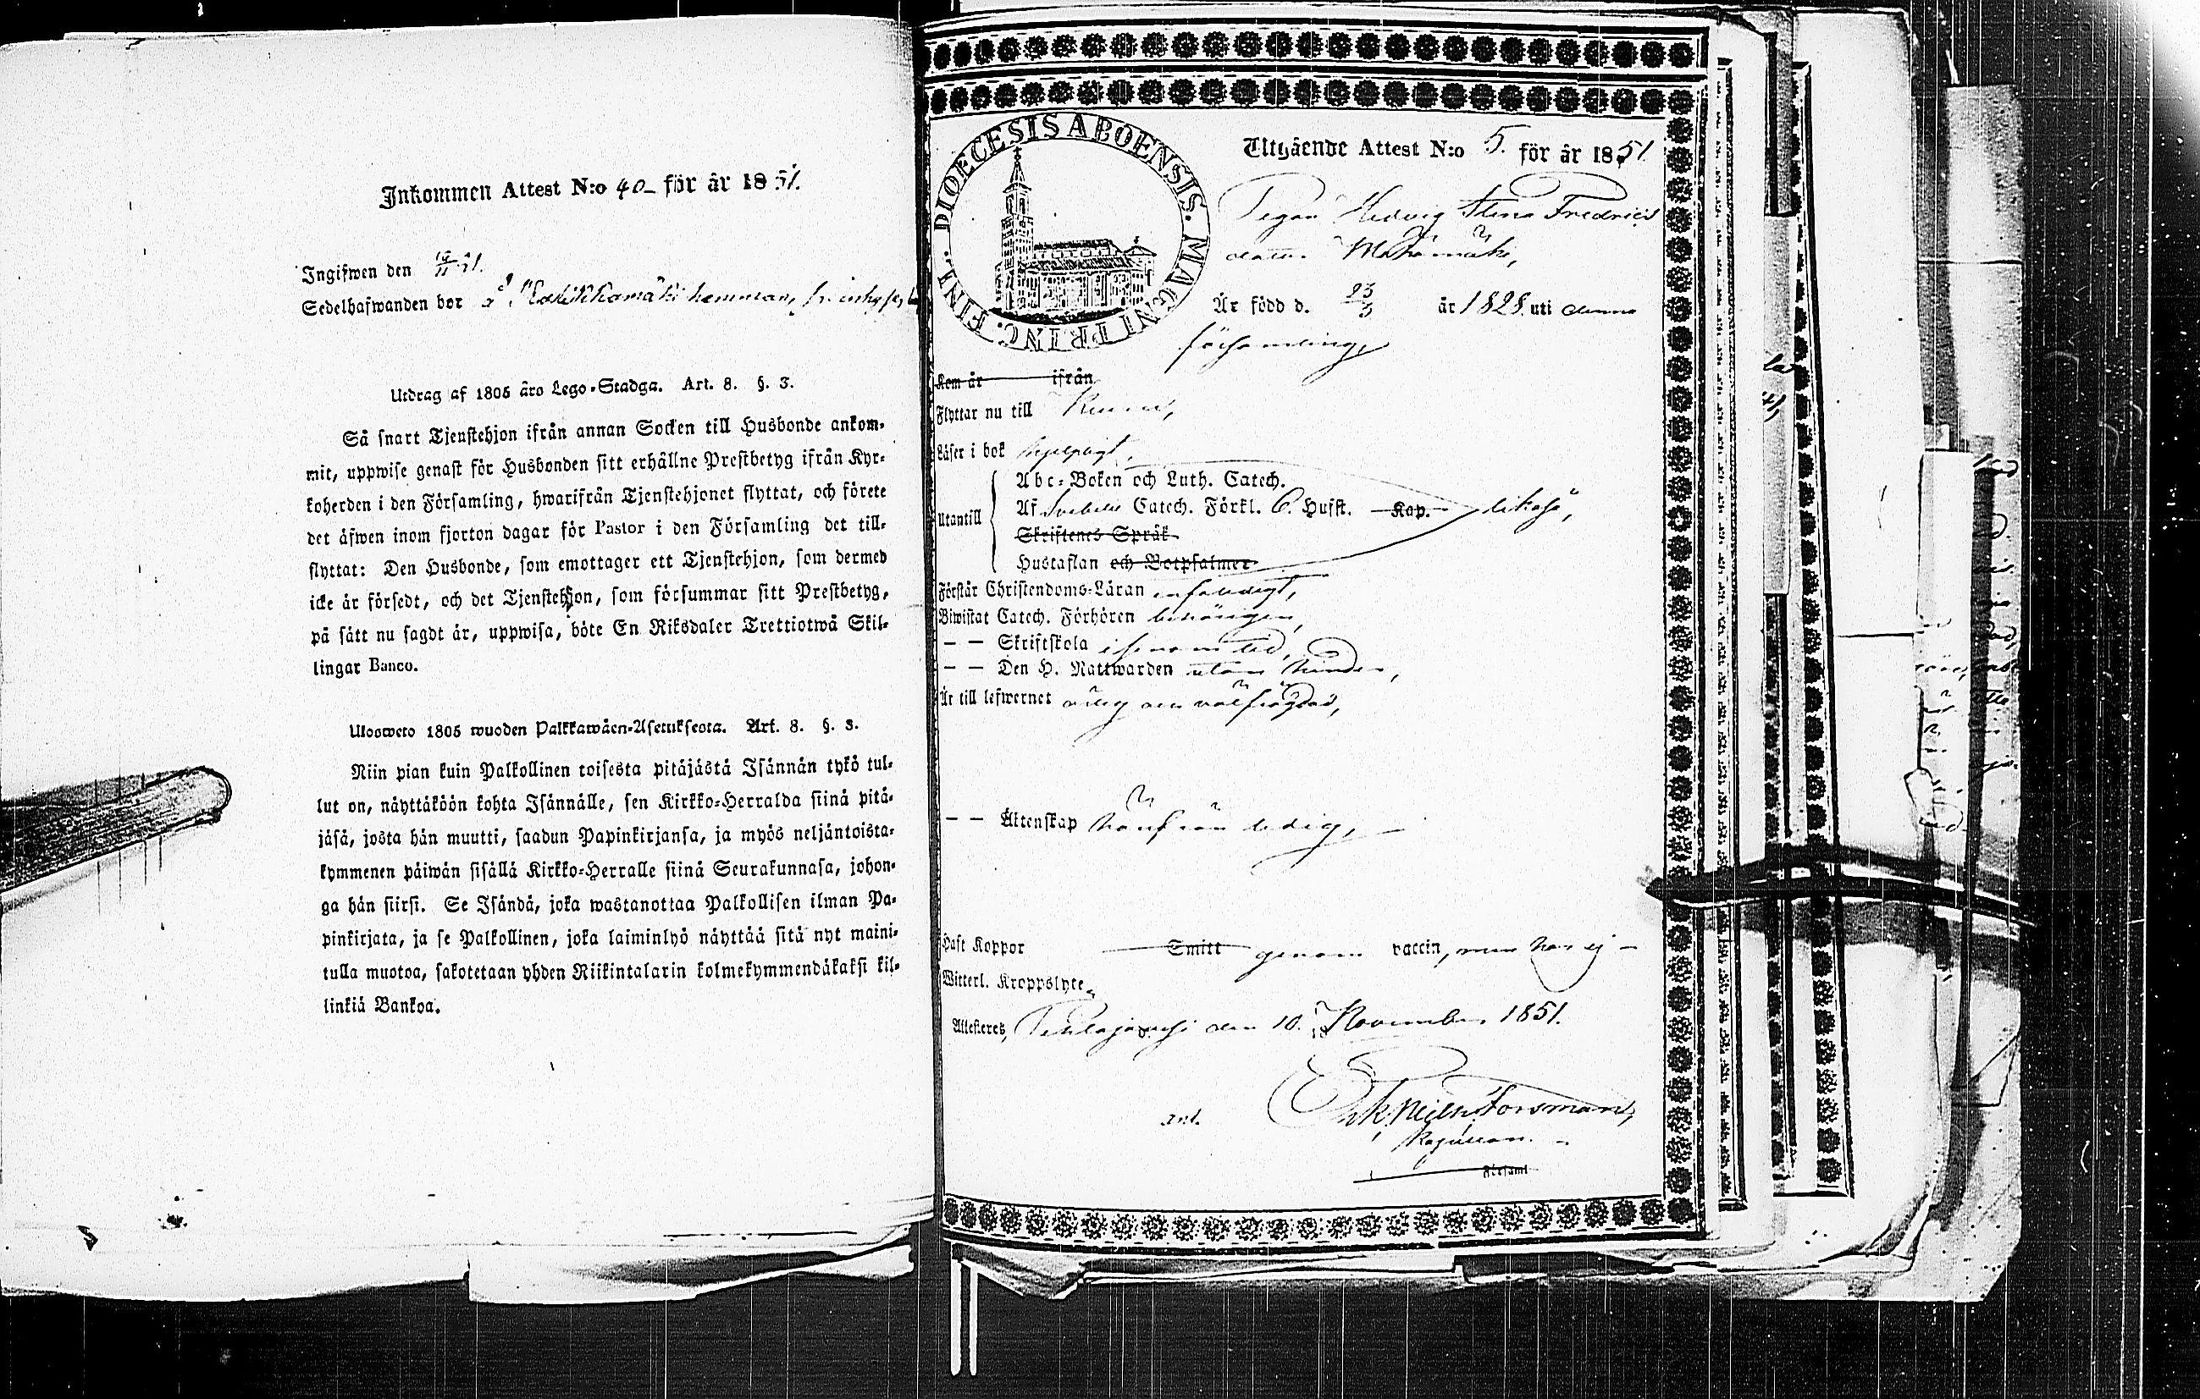 Inkommen Attest N:o 40 för år 1851.
Ingifwen den 19/11 51.
Sedelhafwanden bor å hemman,
Utdrag af 1805 års Lego-Stadga. Art. 8. §. 3.
Så snart Tjenstehjon ifrån annan Socken till Husbonde ankom-
mit, uppwise genast för Husbonden sitt erhållne Prestbetyg ifrån Kyr-
koherden i den Församling, hwarifrån Tjenstehjonet flyttat, och förete
det äfwen inom fjorton dagar för Pastor i den Församling det till-
flyttat: Den Husbonde, som emottager ett Tjenstehjon, som dermed
icke är försedt, och det Tjenstehjon, som försummar sitt Prestbetyg,
på sätt nu sagdt är, uppwisa, böte En Riksdaler Trettiotwå Skil-
lingar Banco.
Ulosweto 1805 wuoden Palkkawäen-Asetuksesta. Art. 8. §. 3.
Niin pian kuin Palkollinen toisesta pitäjästä Isännän tykö tul-
lut on, näyttäköön kohta Isännälle, sen Kirkko-Herralda siinä pitä-
jäsä, josta hän muutti, saadun Papinkirjansa, ja myös neljäntoista-
kymmenen päiwän sisällä Kirkko-Herralle siinä Seurakunnasa, johon-
ga hän siirsi. Se Isändä, joka wastanottaa Palkollisen ilman Pa-
pinkirjata, ja se Palkollinen, joka laiminlyö näyttää sitä nyt maini-
tulla muotoa, sakotetaan yhden Riikintalarin kolmekymmendäkaksi kil-
linkiä Bankoa.
DIOECESIS ABOENSIS. MAGNI PRINC. FINL.
Utgående Attest N:o 5. för år 1851.
Pigan Hedvig Stina Fredrics
dotter
Är född d. 23/3 år 1828. uti denna
församling,
Kom år ifrån
Flyttar nu till
Läser i bok hjelpligt,
Utantill
Abc-Boken och Luth. Catech.
Af Svebelii Catech. Förkl. 6. Hufst. Kap. likaså,
Skriftenes Språk
Hustaflan och Botpsalmer
Förstår Christendoms-Läran enfaldigt,
Biwistat Catech. Förhören behörigen,
— — Skriftskola i sinom tid,
— — Den H. Nattwarden utan hinder,
Är till lefwernet ärlig och välfrägdad,
— — Äktenskap härifrån ledig,
Haft Koppor Smitt genom vaccin, men har ej
Witterl. Kroppslyte.
Attesteres, den 10. November 1851.
Forsman,
Kapellan.
Församl